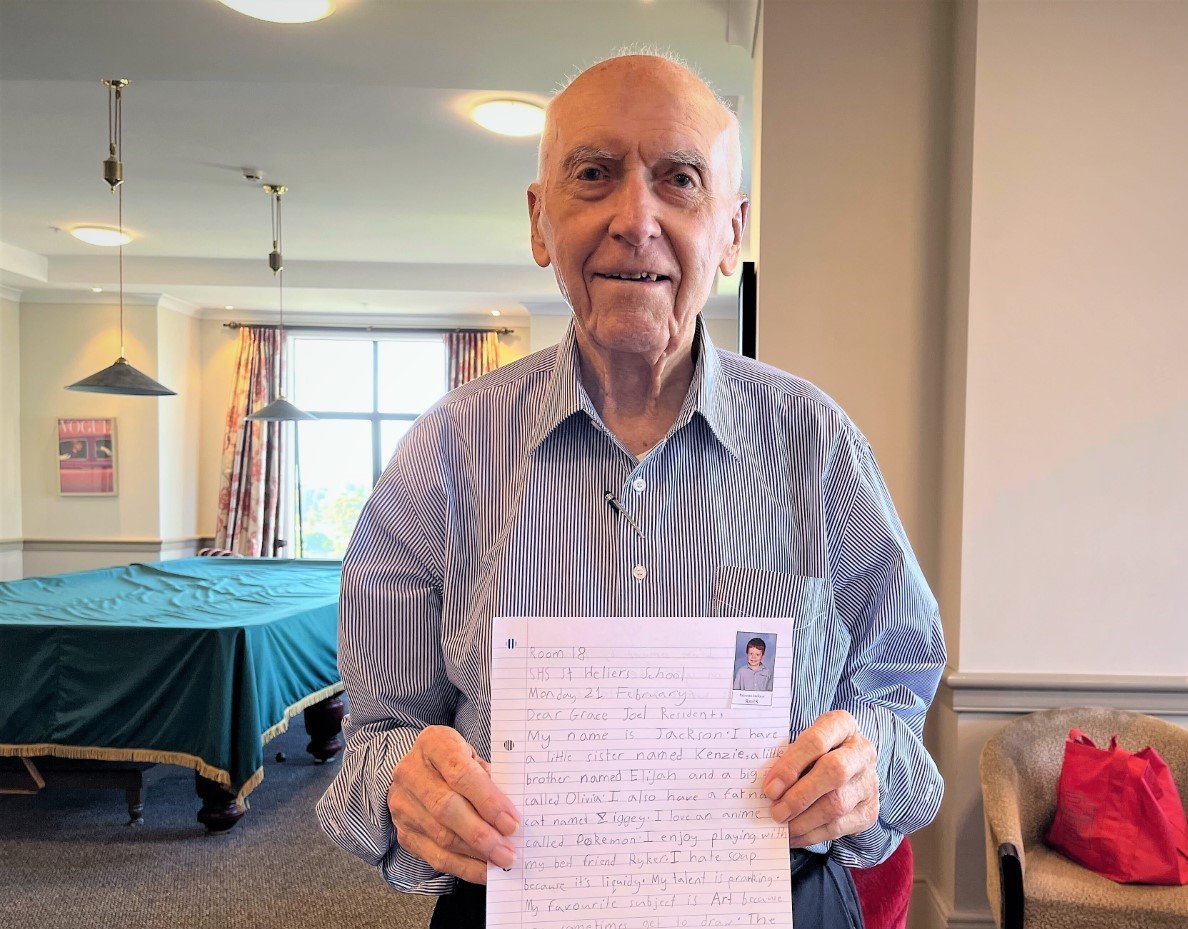 VOGUE
Room 18
SHS St Heliers School
Monday 21 February
Dear Grace Joel Resident,
My name is Jackson. I have
a little sister named Kenzie, a little
brother named Elijah and a big
called Olivia. I also have a fat
cat named Ziggey. I love an anime
called Pokemon. I enjoy playing with
my best friend Ryker. I hate soap
because it's liquidy. My talent is pranking.
My favourite subject is Art because
sometimes get to draw. The
Room 18